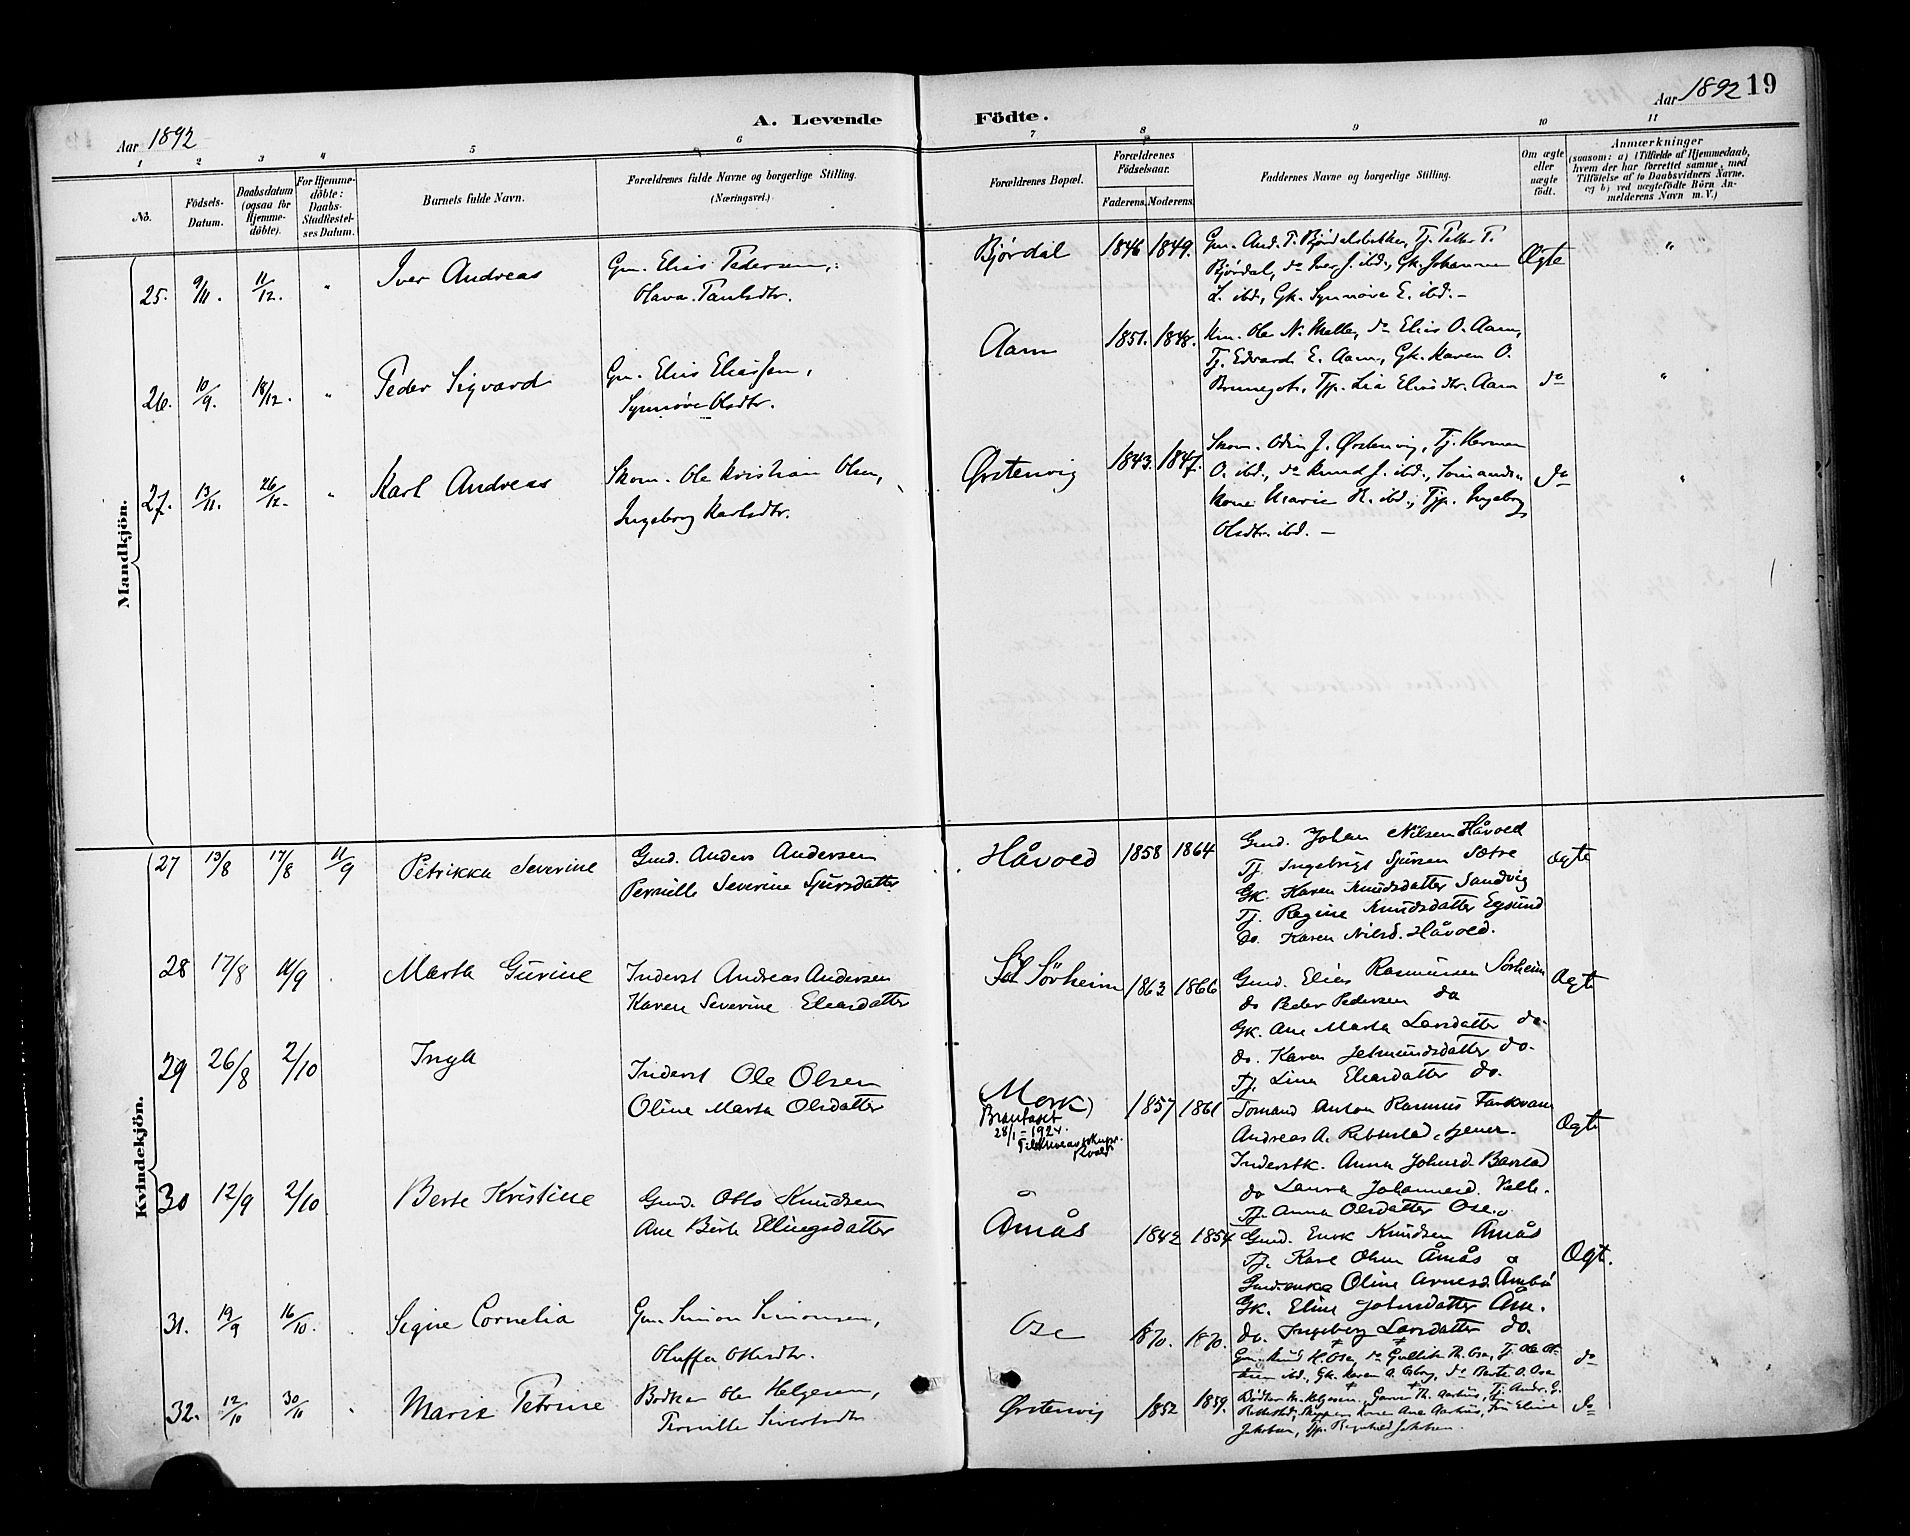 Aar 1892
A. Levende Födte.
Aar 1892 19
1 2 3 4 5 6 7 8 9 10 11
No.
Födsels-Datum.
Daabsdatum (ogsaa for Hjemme-döbte).
For Hjemme-döbte: Daabs-Stadfæstel-ses Datum.
Barnets fulde Navn.
Forældrenes fulde Navne og borgerlige Stilling. (Næringsvei.)
Forældrenes Bopæl.
Forældrenes Födselsaar.
Faderens. Moderens.
Faddernes Navne og borgerlige Stilling.
Om ægte eller uægte født.
Anmærkninger
(saasom: a) i Tilfælde af Hjemmedaab,
hvem der har forrettet samme, med
Tilföielse af to Daabsvidners Navne,
og b) ved uægtefödte Börn An-
melderens Navn m. V.)
Mandkjön.
25. 9/11. 11/12. " Iver Andreas Gm. Elias Pedersen, Olava Paulsdtr. Bjørdal 1846 1849. Gm. And. P. Bjørdalsbakken, Tj. Petter P.
Bjørdal, do Iver J. ibd., Gk. Johanna
L. ibd., Gk. Synnøve E. ibd. – Ægte "
26. 10/9. 18/12. " Peder Sigvard Gm. Elias Eliassen, Synnøve Olsdtr. Aam 1851. 1848. Km. Ole N. Melle, do Elias O. Aam,
Tj. Edvard E. Aam, Gk. Karen O.
Brunegot, Tjp. Lia Eliasdtr. Aam do "
27. 13/11. 26/12. " Karl Andreas Skom. Ole Kristian Olsen, Ingeborg Karlsdtr. Ørstenvig 1843. 1847. Skom. Odin J. Ørstenvig, Tj. Herman
O. ibd., do Knud J. ibd., Tomands
Kone Marie K. ibd., Tjp. Ingeborg
Olsdtr. ibd. – do "
Kvindekjön.
27 13/8 17/8 11/9 Petrikka Severine Gmd. Anders Andersen
Pernille Severine Sjursdatter Håvold 1858 1864 Gmd. Johan Nilsen Håvold
Tj. Ingebrigt Sjursen Sætre
Gk. Karen Knudsdatter Sandvig
Tj. Regine Knudsdatter Egsund
do. Karen Nilsd. Håvold. Ægte
28 17/8 11/9 Marta Gurine Inderst Andreas Andersen
Karen Severine Eleasdatter Sörheim 1863 1866 Gmd. Elias Rasmussen Sörheim
do Peder Pedersen do
Gk. Ane Marta Larsdatter do.
do. Karen Jetmundsdatter do.
Tj. Lina Eleasdatter do. Ægte
29 26/8 2/10 Inga Inderst Ole Olsen
Oline Marta Olsdatter Mork
28/1 – 1924. 1857 1861 Tomand Anton Rasmus
Andreas A. Rebbestad, tjener.
Inderstk. Anna Johnsd. Barstad
do Laura Johannesd. Velle.
Tj. Anna Olsdatter Ose. Ægte
30 12/9 2/10 Berte Kristine Gmd. Otto Knudsen
Ane Berte Ellingsdatter Åmås 1842 1854 Gmd. Enok Knudsen Åmås
Tj. Karl Olsen Åmås
Gmd.enke Oline Arnesd.
Gk. Eline Johnsdatter Åm.
do. Ingeborg Larsdatter do. Ægt.
31. 19/9 16/10. Signe Cornelia Gm. Simon Simonsen,
Oluffa Olsdtr. Ose 1870. 1870. Gm. Knud K. Ose, do Gullik Th. Ose, Tj. Ole
ibd., Gk. Karen A. do Berte O. Ose do
32. 12/10 30/10 Marie Petrine Bødker Ole Helgesen,
Pernille Sivertsdtr Ørstenvig 1852 1859. Bødker M. Helgesen, Garver Th. Aarhus, Tj. Andr. G.
Rebbestad, Skippers Kone Ane Aarhus, Frk Eline
Jakobsen, Tjp. Ragnhild Jakobsen. do